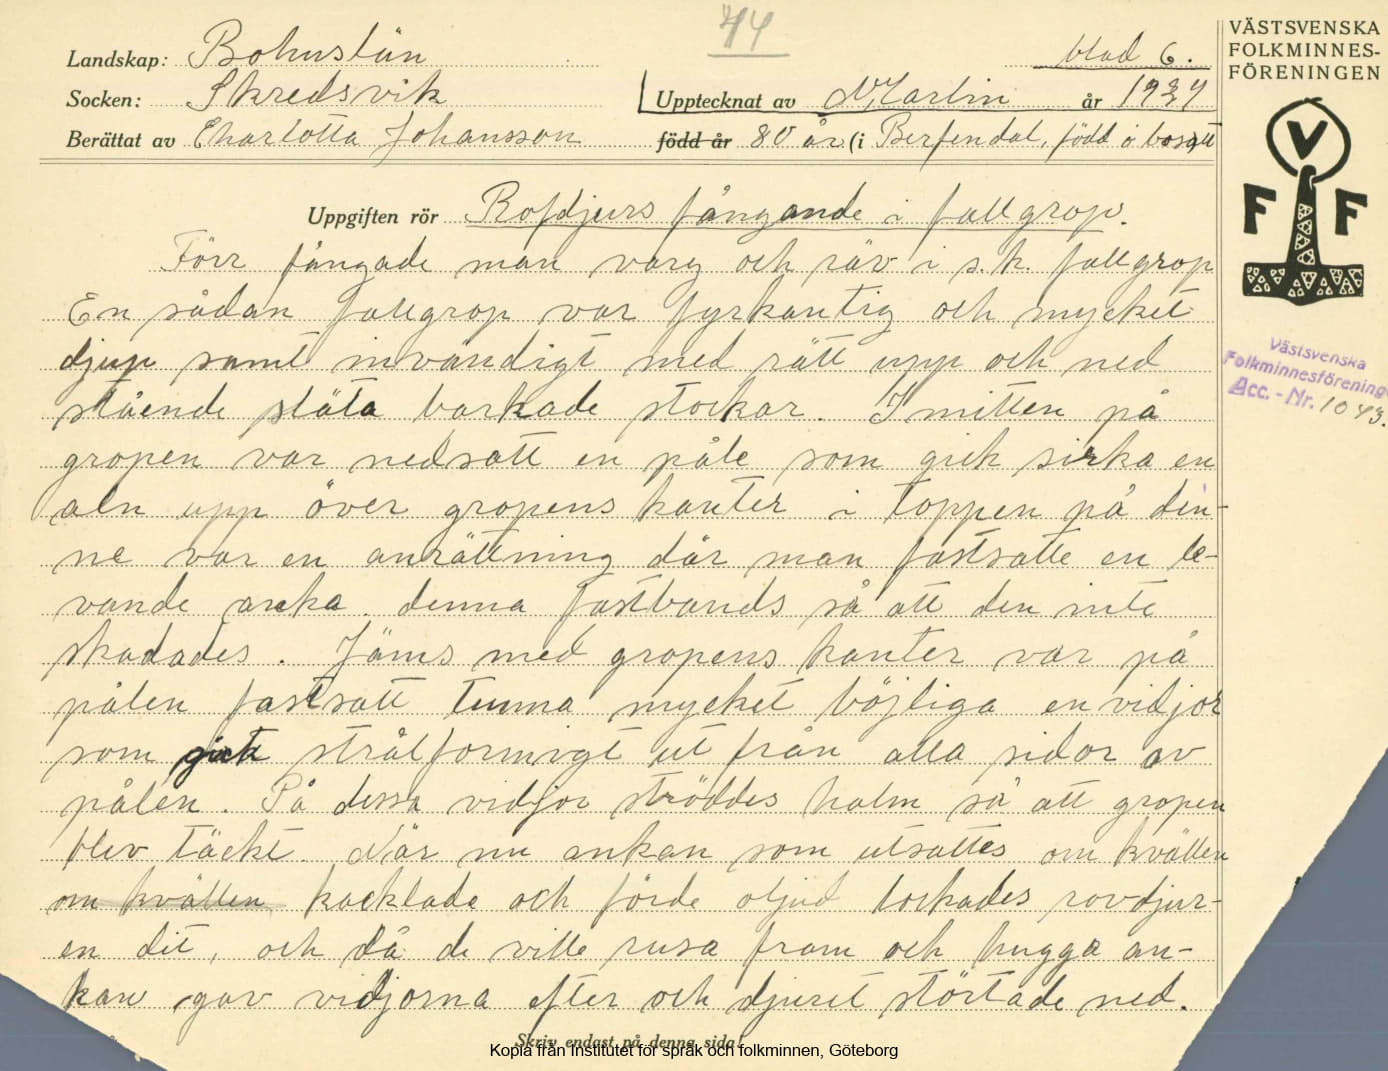 44
VÄSTSVENSKA
FOLKMINNES-
FÖRENINGEN
Landskap: Bohuslän
blad 6.
Socken: Skredsvik
Upptecknat av N. Karlin år 1924
Berättat av Charlotta Johansson
född år 80 år (i Berfendal, född o bosatt
V
F F
Uppgiften rör Rofdjurs fångande i fallgrop.
Förr fångade man varg och räv i s.k. fallgrop
En sådan fallgrop var fyrkantig och mycket
djup samt invändigt med rätt upp och ned
stående släta barkade stockar. I mitten på
gropen var nedsatt en påle som gick sirka en
aln upp över gropens kanter i toppen på den-
ne var en anrättning där man fastsatte en le-
vande anka. denna fastbands så att den inte
skadades. Jäms med gropens kanter var på
pålen fastsatt tunna mycket böjliga en vidjor
som gick strålformigt ut från alla sidor av
pålen. På dessa vidjor ströddes halm så att gropen
blev täckt. När nu ankan som utsattes om kvällen
om kvällen kacklade och förde oljud lockades rovdjur-
en dit, och då de ville rusa fram och hugga an-
kan gav vidjorna efter och djuret störtade ned.
Västsvenska
Folkminnesförening
Acc.-Nr. 1043.
Skriv endast på denna sida!
Kopia från Institutet för språk och folkminnen, Göteborg